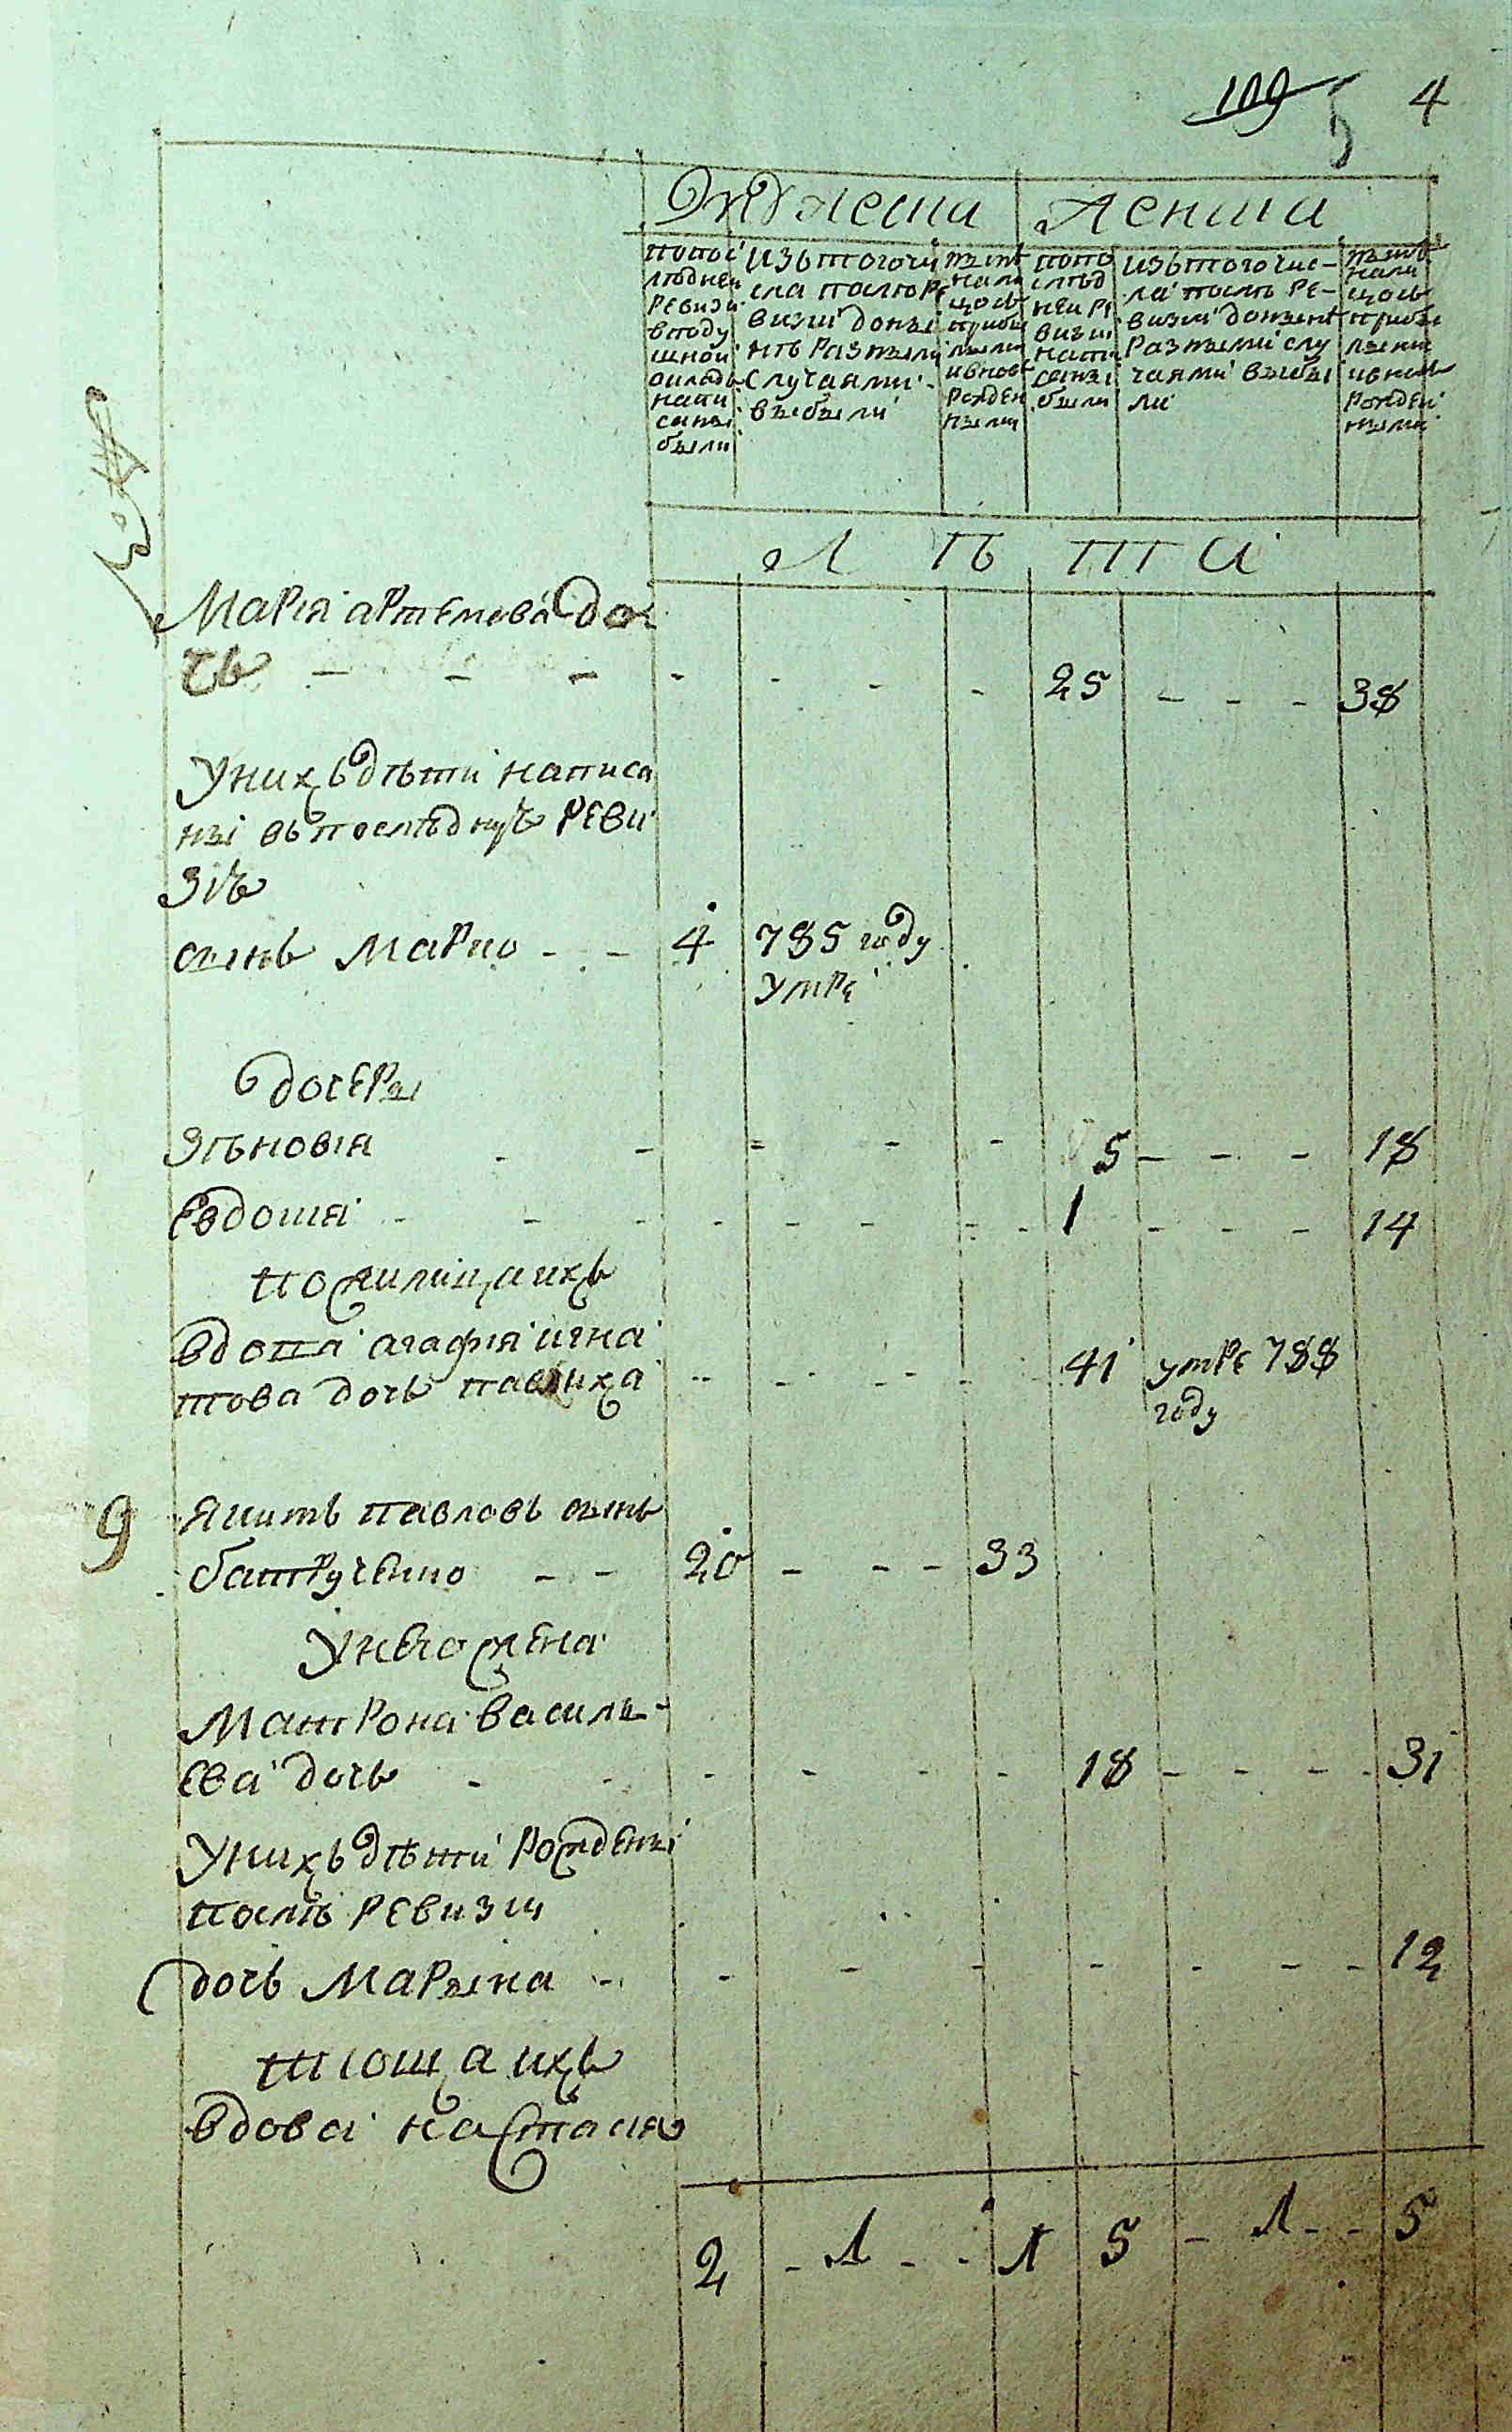 109 5 4
Мужеска Женска
попос
лѣдней
Ревизи
вподу
шной
окладъ
напи
саны
были
изътогочи
сла послѣРе
визиі доныне
нѣ Разными
Случаями
выбыли
ныне
нали
цось
прибы
лыми
ивнов
Рожден
ными
попо
слѣд
неи Ре
визи
напи
саны
были
изътого чис-
ла послѣ РЕ-
визиі доныне
Разными слу
чаями выбы
ли
ныне
нали
цось
прибы
лыми
ивнов
Рожден
ными
Л Ѣ Т А
МаРія аРтемова до
чь - - - - - - - 25 - - - 38
Унихъ дѣти написа
ны въ послѣднуѣ РЕВИ
Зіѣ
сынъ МаРко - - 4 785 году
умре
дочЕРы
Зѣновія - - - - - 5 - - - 18
Евдокия - - - - - - - 1 - - - 14
помачиха ихъ
вдова агафія игна
това дочь - - - - 41 умРЕ 788
году
9 Якимъ павловъ сынъ
- - 20 - - - 33
УнЕго жЕна
МатРона василь-
Ева дочь - - - - - - 18 - - - - 31
Унихъ дѣти РождЕны
послѣ РЕвизиі
дочь МаРына - - - - - - - - 12
тіоща ихъ
вдова настасия
2 - 1 - - 1 5 - 1 - - 5